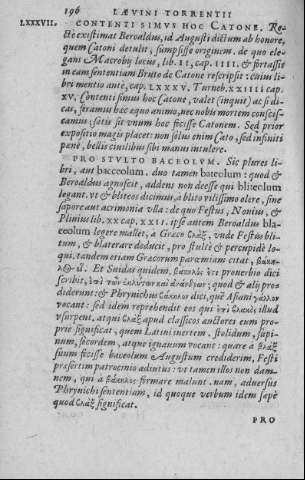 196 LÆVINI TORRENTII
LXXXVII. CONTENTI SIMVS HOC CATONE. Re-
ctè existimat Beroaldus, id Augusti dictum ab honore,
quem Catoni detulit, sumpsisse originem. de quo ele-
gans Macrobij locus, lib. II, cap. IIII. & fortassis
in eam sententiam Bruto de Catone rescripsit: cuius libri
mentio antè, cap. LXXXV. Turneb. XXIIII cap.
XV. Contenti simus hoc Catone, valet (inquit) ac si di-
cas, feramus hæc æquo animo, nec nobis mortem consis-
camus: satis sit vnum hoc fecisse Catonem. Sed prior
expositio magis placet: non solus enim Cato, sed infiniti
penè, bellis ciuilibus sibi manus intulere.
PRO STVLTO BACEOLVM. Sic plures li-
bri, aut bacceolum, duo tamen bateolum: quod &
Beroaldus agnoscit, addens non deesse qui bliteolum
legant. vt & bliteos dicimus, à blito vilissimo olere, sine
sapore aut acrimonia vlla: de quo Festus, Nonius, &
Plinius lib. XX cap. XXII. ipse autem Beroaldus bla-
ceolum legere mallet, à Græco βλάξ, vnde Festus bli-
tum, & blaterare deducit, pro stultè & percupidè lo-
qui. tandem etiam Græcorum parœmiam citat,
Et Suidas quidem, βάκηλος prouerbio dici
scribit, quod & alij pro-
diderunt: & Phrynichus βάκηλον dici, quē Asiani γάλλον
vocant: sed idem reprehendit eos qui illud
vsurpent, atqui βλάξ apud classicos auctores eum pro-
priè significat, quem Latini inertem, stolidum, supi-
num, socordem, atque ignauum vocant: quare à βλὰξ
suum fecisse baceolum Augustum crediderim, Festi
præsertim patrocinio adiutus: vt tamen illos non dam-
nem, qui à βάκηλος formare malunt. nam, aduersus
Phrynichi sententiam, id quoque verbum idem sæpè
quod βλάξ significat.
PRO